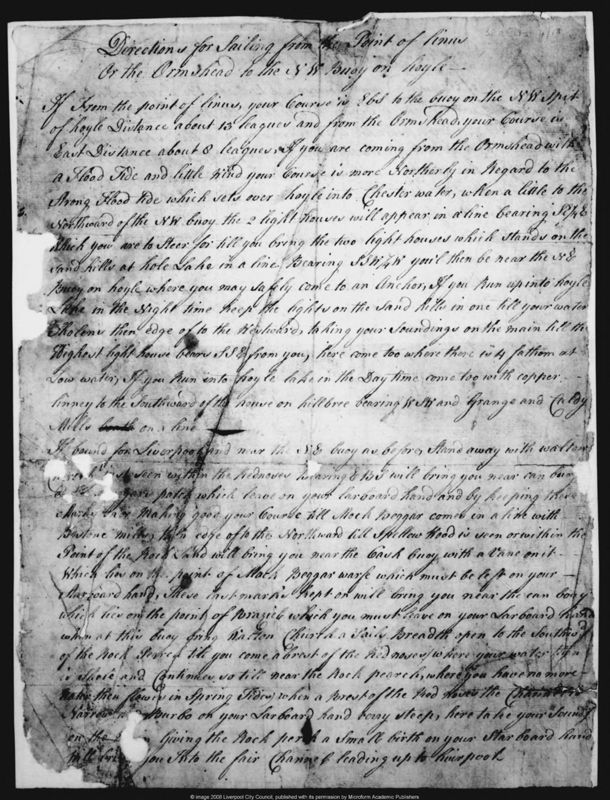 Directions for Sailing from the Point of linus
Or the Ormshead to the N W Buoy on hoyle
If From the point of linus, your Course is EbS to the buoy on the N W Spit
of hoyle Distance about 13 leagues and from the Ormshead, your Course is
East Distance about 8 leagues, If you are coming from the Ormshead with
a Flood Tide and little Wind your Course is more Northerly in Regard to the
Strong flood tide which sets over hoyle into Chester water, when a little to the
Northward of the N W buoy the 2 light houses will appear in a line bearing
which you are to Steer for till you bring the two light houses which Stands on the
Sand hills at hole Lake in a line Bearing you'l then be near the N E
Buoy on hoyle where you may safely come to an Anchor, If you Run up into hoyle
Lake in the Night time keep the lights on the Sand hills in one till your water
Sholens then Edge of to the Westward, taking your Soundings on the main till the
Highest light house bears S S E from you, here come too where there is 4 fathom at
Low water, If you Run into hoyle lake in the Day time come too with copper
linney to the Southward of the house on hillbree bearing W S W and Grange and Caldy
Mills on a line
If bound for Liverpool and near the N E buoy as before, Stand away with
seen within the Rednoses bearing will bring you near can buoy
patch which leave on your larboard hand and by keeping these
Marks Making good your Course till Mock Beggar comes in a line with
mill, then edge of to the Northward till Spellow Hood is seen or within the
Point of the Rock Land will bring you near the Cask buoy with a Vane on it
Which lies on the point of Mock Beggar warfe which must be left on your
Starboard hand, these last marks kept on will bring you near the can buoy
which lies on the point of Brazile which you must leave on your Larboard hand
when at this buoy bring Walton Church a Sails Breadth open to the Southwd
of the Rock Perch till you come abrest of the Red noses, where your water
is Shole and Continues so till near the Rock pearch, where you have no more
water then flows in Spring Tides, when a Brest of the Red Noses the
Narrow Burbo on your Larboard hand bering steep, here take your Sound
on the Giving the Rock perch a Small birth on your Starboard hand
will bring you Into the fair Channel leading up to liverpool
© image 2008 Liverpool City Council, published with its permission by Microform Academic Publishers